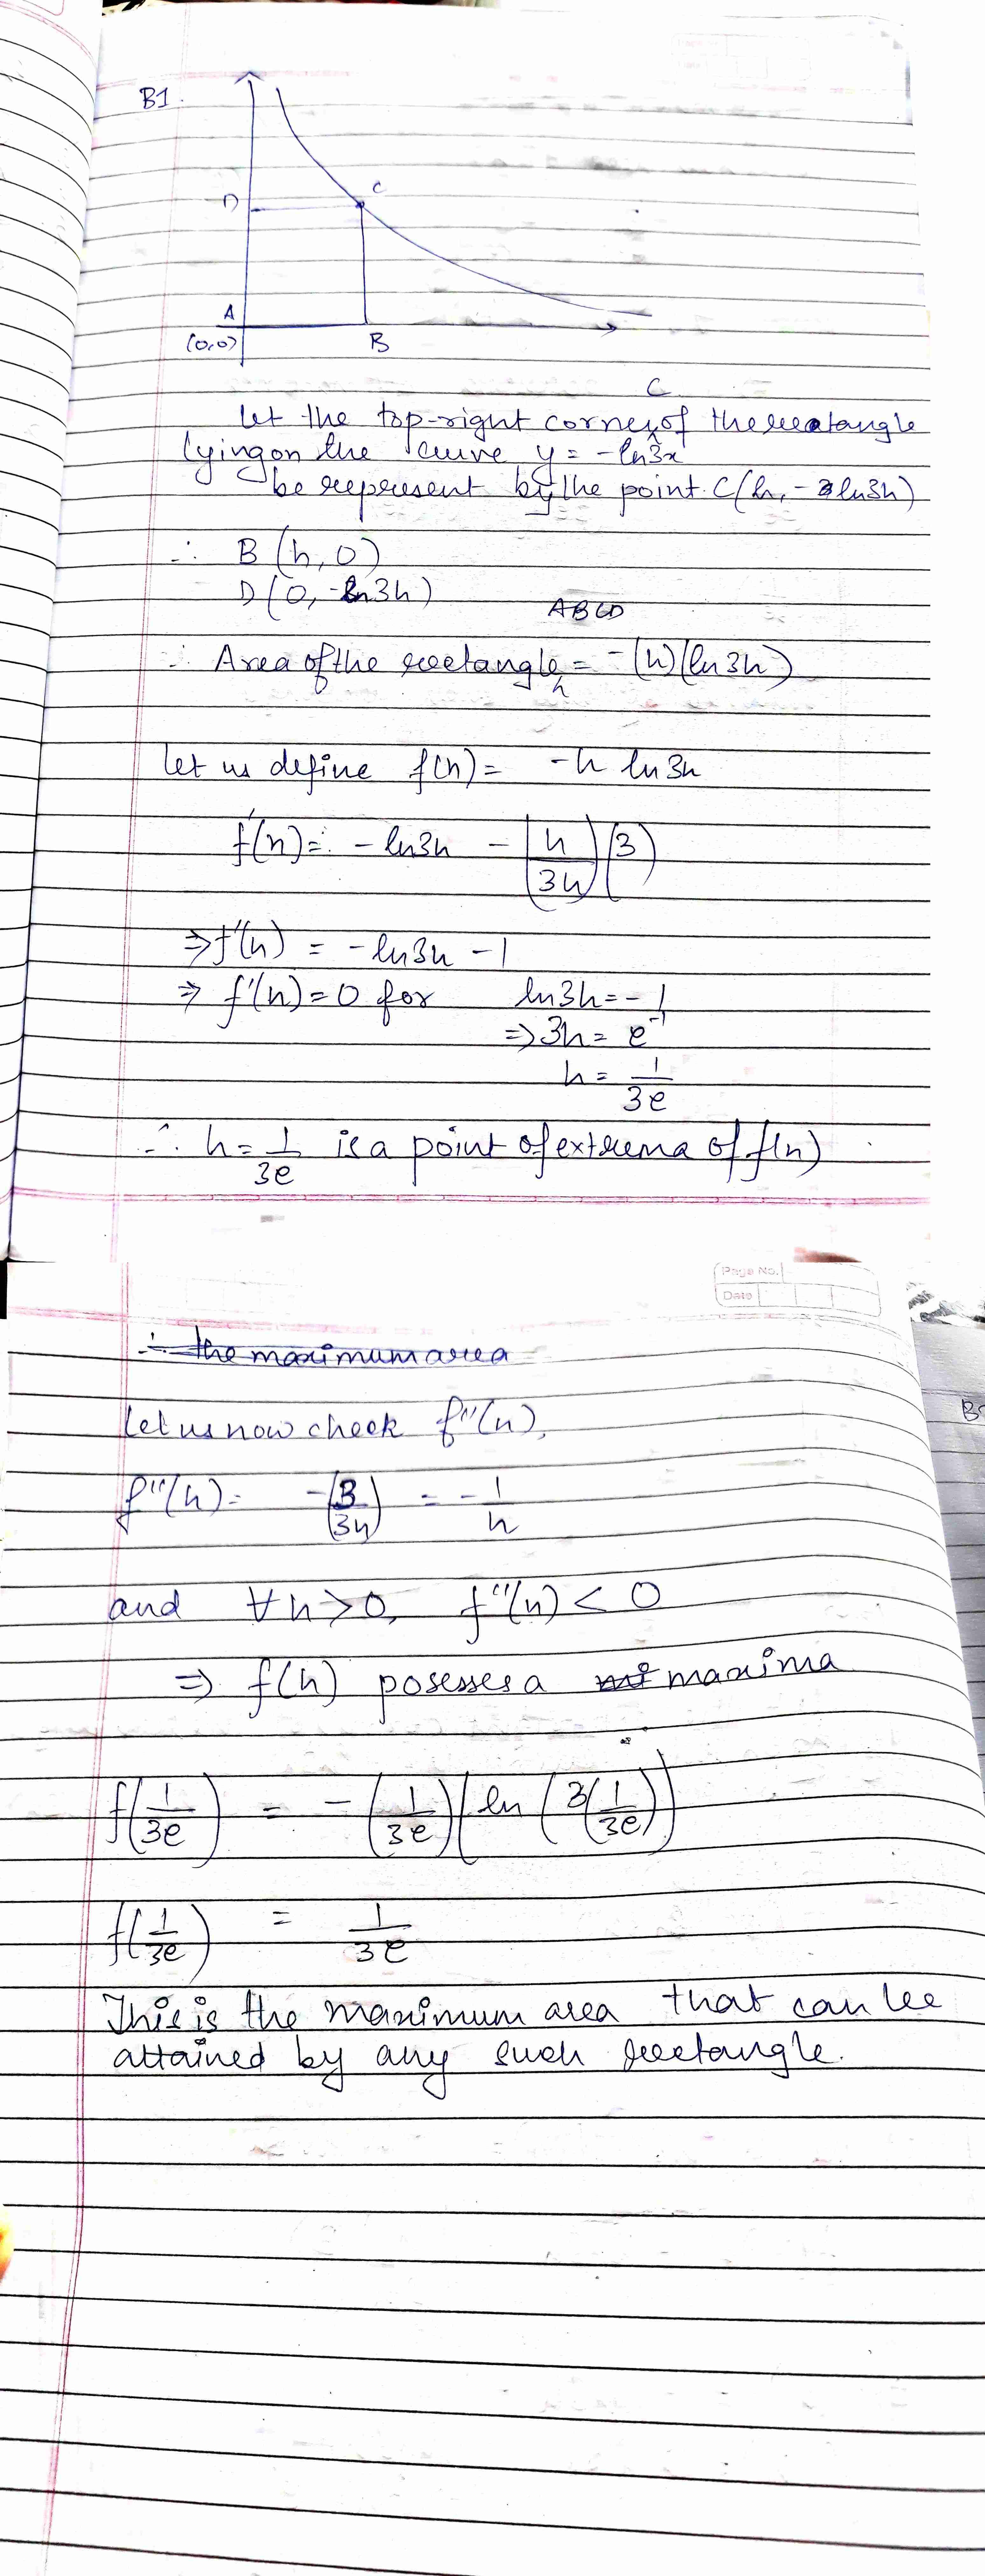 B1.
C
D
A
(0,0)
B
C
Let the top-right corner of the rectangle
lying on the curve y = -ln3x
be represent by the point C(h, -ln3h)
∴ B (h, 0)
D (0, -ln3h)
ABCD
∴ Area of the rectangle = -(h)(ln3h)
let us define f(h) = -h ln3h
f'(h) = -ln3h - (h/3h)(3)
⇒ f'(h) = -ln3h - 1
⇒ f'(h) = 0 for ln3h = -1
⇒ 3h = e^-1
h = 1/3e
∴ h = 1/3e is a point of extrema of f(h)
Page No.
Date
∴ the maximum area
Let us now check f''(h),
B
f''(h) = -(3/3h) = -1/h
and ∀ h > 0, f''(h) < 0
⇒ f(h) posesses a maxima
f(1/3e) = -(1/3e)(ln(3(1/3e)))
f(1/3e) = 1/3e
This is the maximum area that can be
attained by any such rectangle.